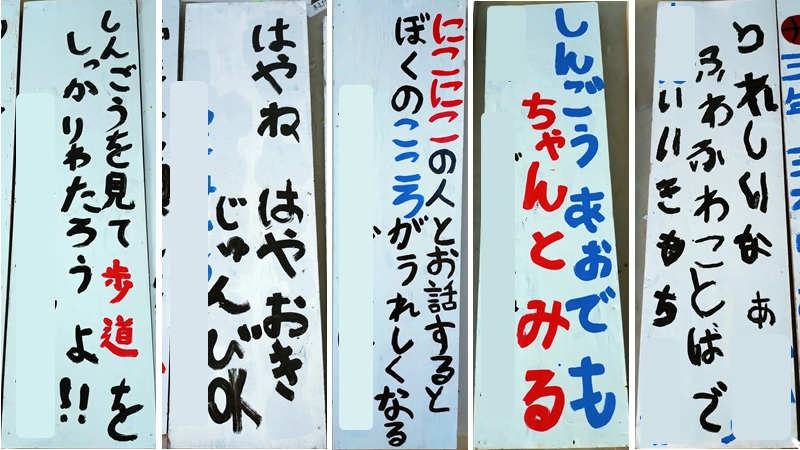 しんごうを見て歩道を
しっかりわたろうよ!!
はやね はやおき
じゅんびOK
にこにこの人とお話すると
ぼくのこころがうれしくなる
しんごうあおでも
ちゃんとみる
うれしいな あ
ふわふわことばで
いいきもち
三年